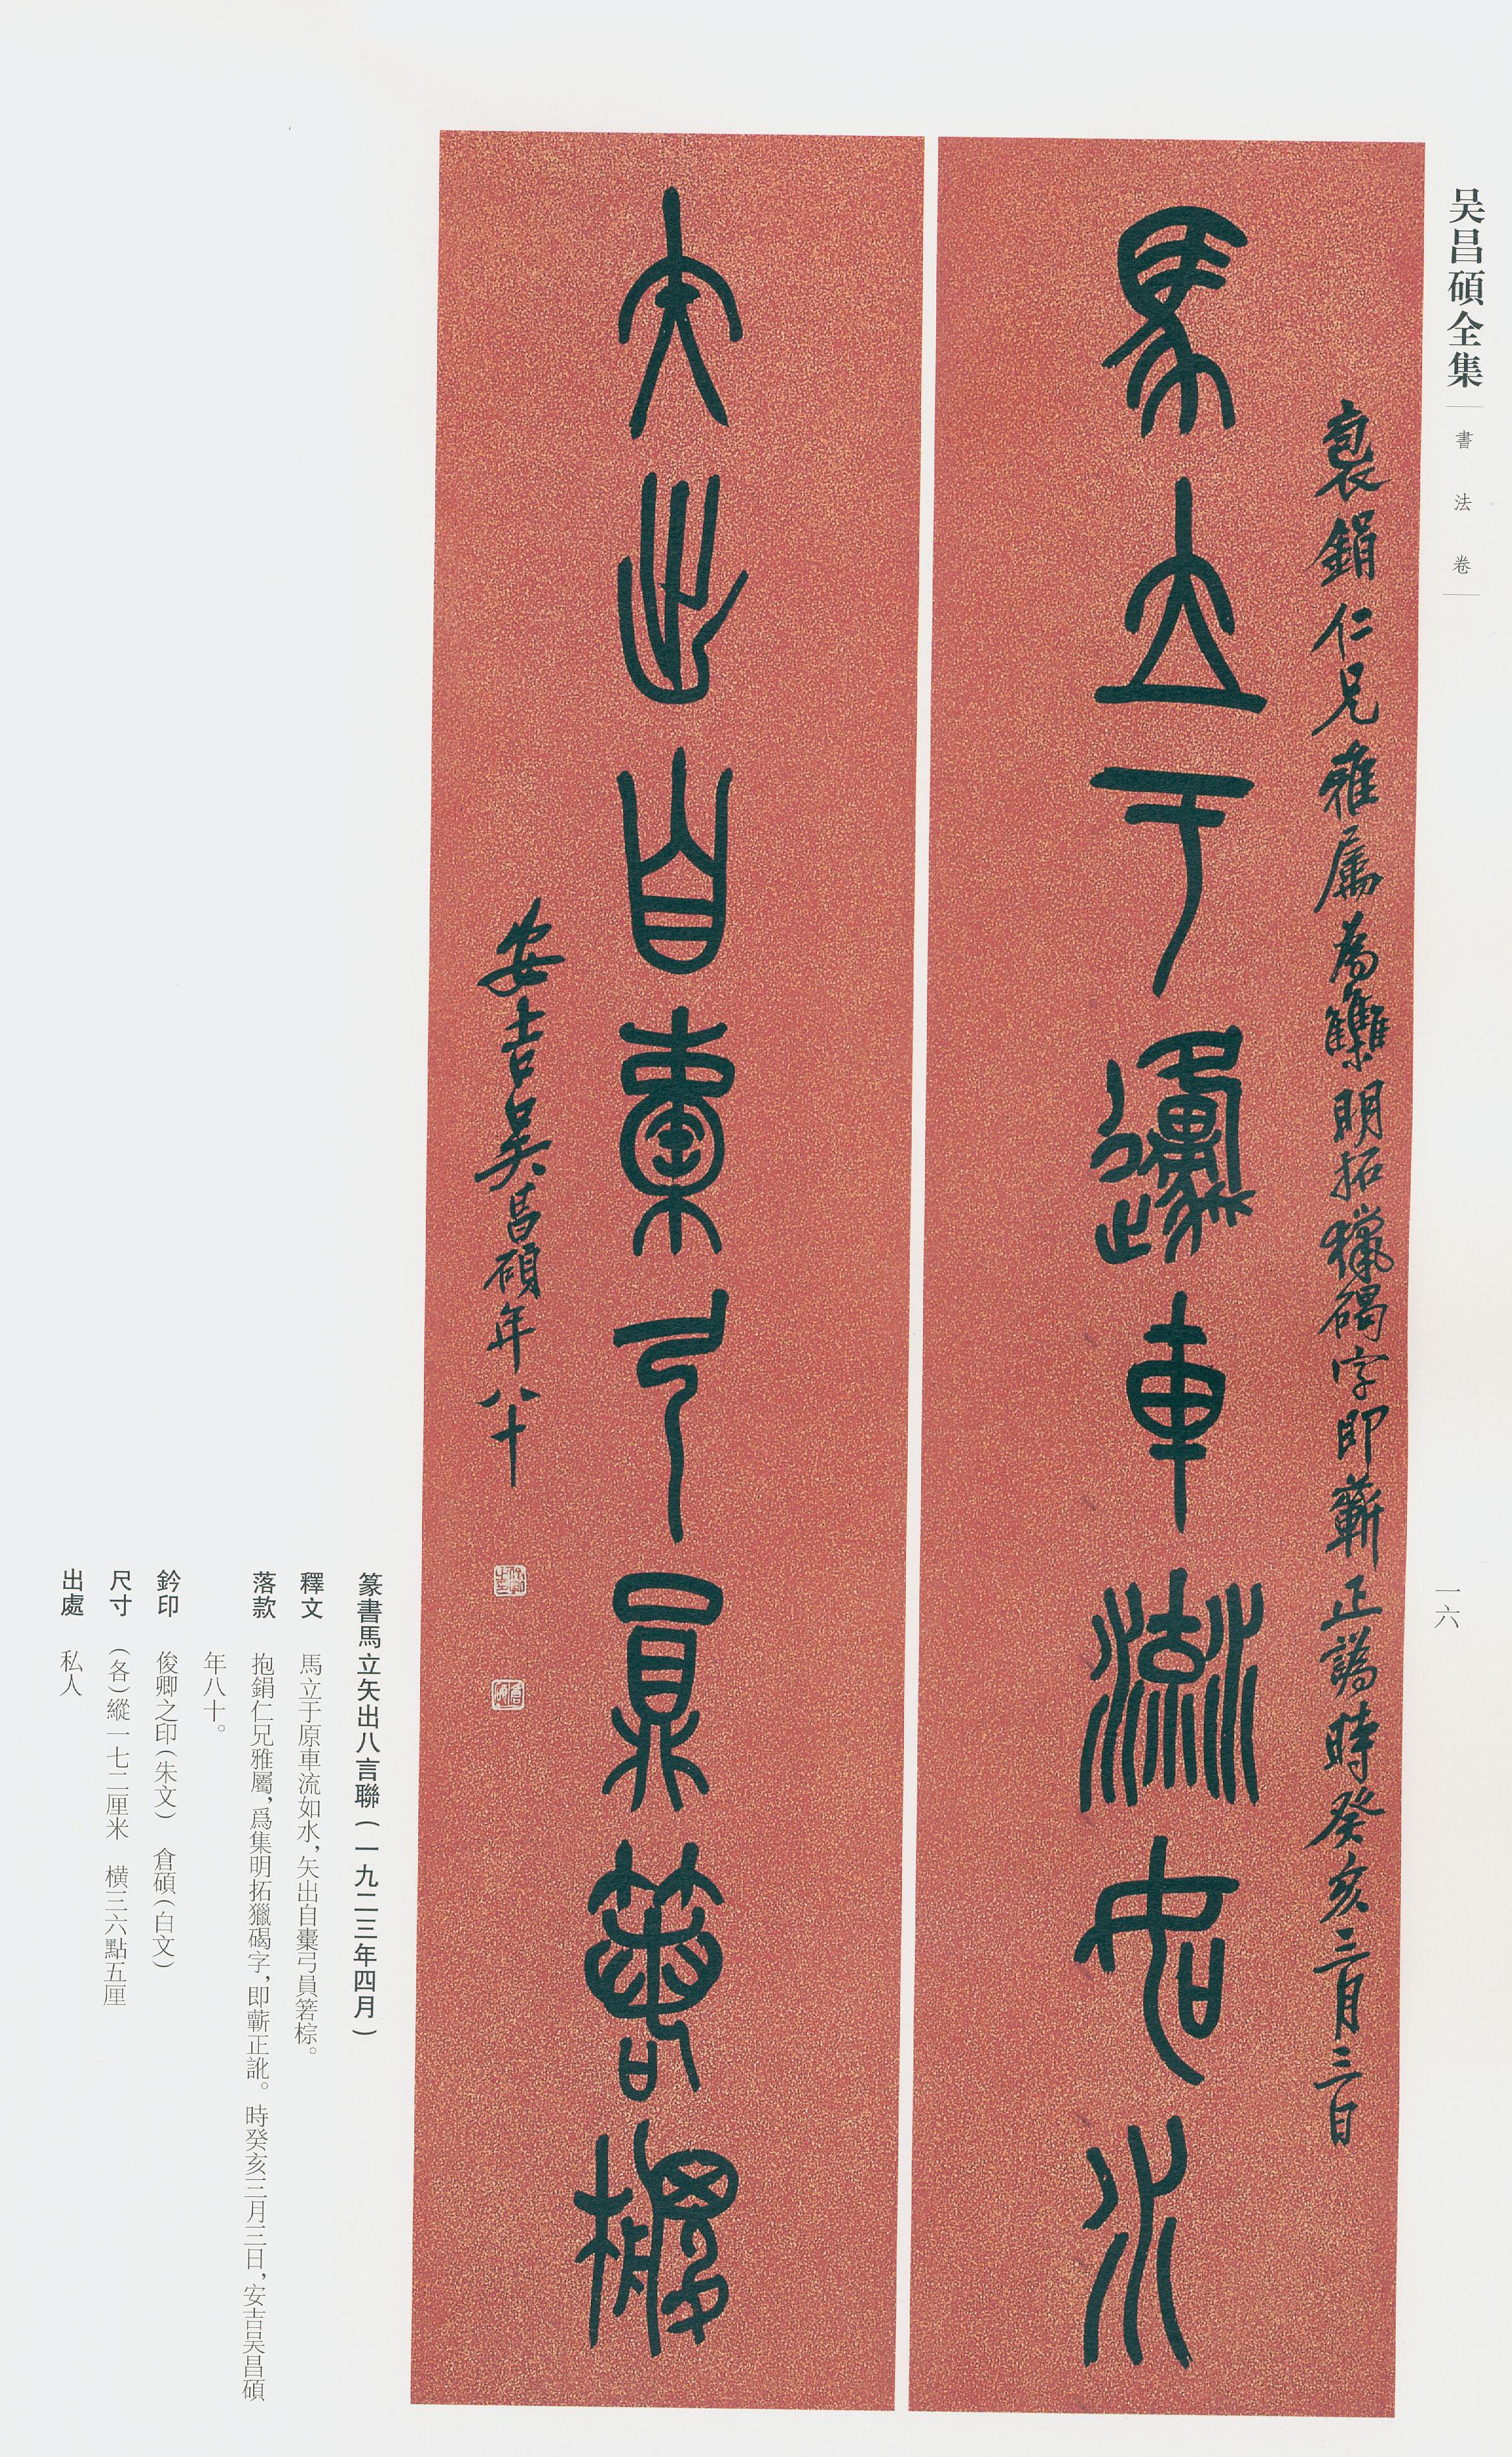 吴昌碩全集
書法卷
一六
裦鋗仁兄雅屬為雧明拓獵碣字即蘄正譌時癸亥三月三日
馬立于邍車流如水
矢出自橐弓員箬椶
安吉吴昌碩年八十
篆書馬立矢出八言聯（一九二三年四月）
釋文　馬立于原車流如水，矢出自橐弓員箬棕。
落款　抱鋗仁兄雅屬，爲集明拓獵碣字，即蘄正訛。時癸亥三月三日，安吉吴昌碩
年八十。
鈐印　俊卿之印（朱文）　倉碩（白文）
尺寸　（各）縱一七二厘米　橫三六點五厘
出處　私人